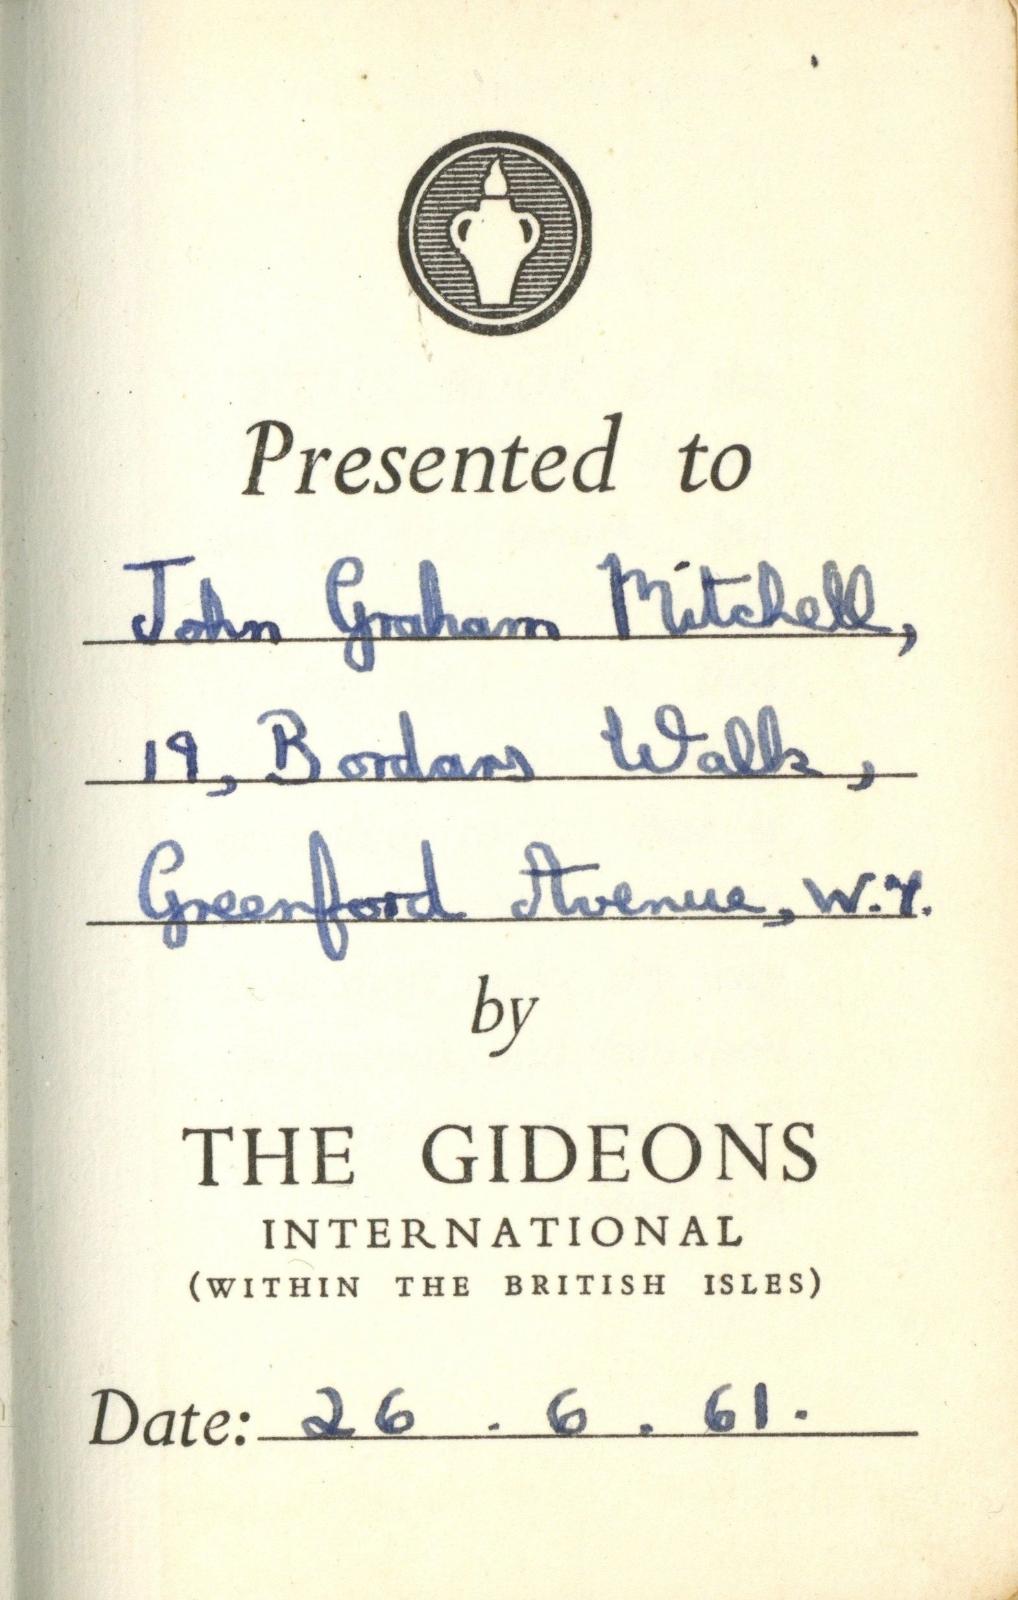 Presented to
John Graham Mitchell,
19, Bordars Walk,
Greenford Avenue, W.7.
by
THE GIDEONS
INTERNATIONAL
(WITHIN THE BRITISH ISLES)
Date: 26 . 6 . 61.